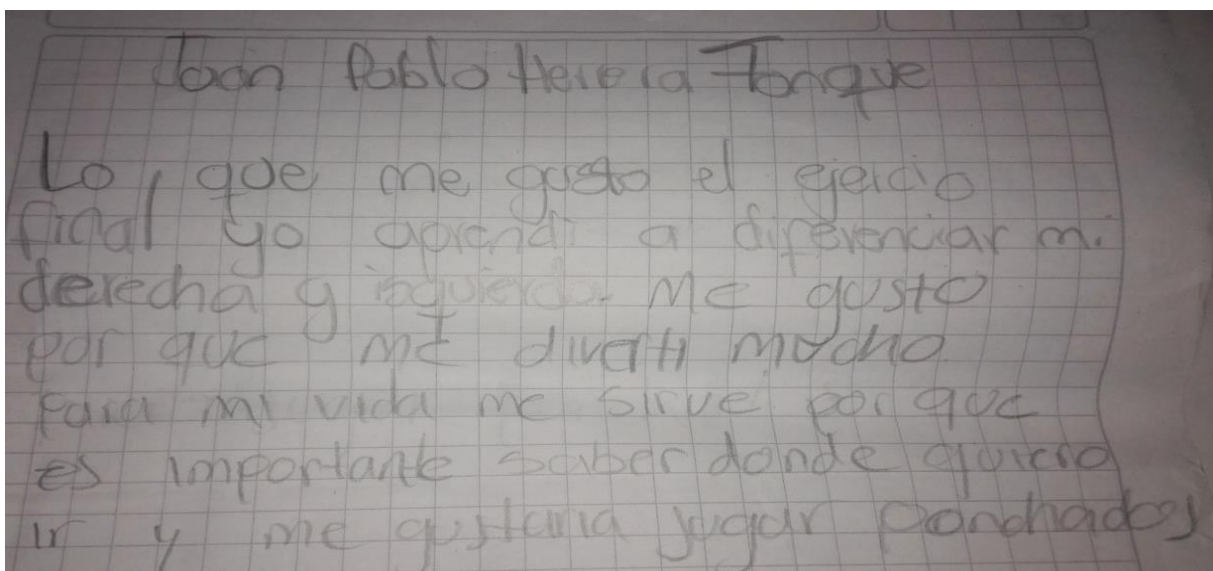 Joan Pablo Herera Tonque
Lo que me gusto el ejercio
final yo aprendi a diferenciar mi
derecha y isquierda. Me gusto
por que me diverti mucho
para mi vida me sirve por que
es importante saber donde quiero
ir y me gustaria jugar ponchados